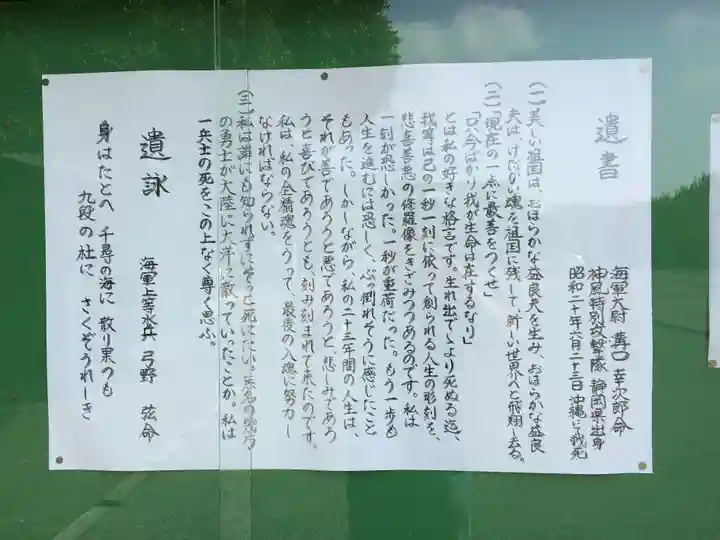 遺書
海軍大尉 溝口 幸次郎 命
神風特別攻撃隊 静岡県出身
昭和二十年六月二十三日 沖縄にて戦死
(一)美しい祖国は、おほらかな益良夫を生み、おほらかな益良
夫は、けだかい魂を祖国に残して、新しい世界へと飛翔し去る。
(二)「現在の一点に最善をつくせ」
「只今ばかり我が生命は在するなり」
とは私の好きな格言です。生れ出でゝより死ぬる迄、
我等は己の一秒一刻に依って創られる人生の彫刻を、
悲喜善悪の修羅像をきざみつつあるのです。私は
一刻が恐しかった。一秒が重荷だった。もう一歩も
人生を進むには恐しく、ぶっ倒れそうに感じたこと
もあった。しかしながら、私の二十三年間の人生は、
それが善であろうと悪であろうと、悲しみであろ
うと喜びであろうとも、刻み刻まれて来たのです。
私は、私の全精魂をうって、最後の入魂に努力し
なければならない。
(三)私は誰にも知られずにそっと死にたい。無名の幾万
の勇士が大陸に大洋に散っていったことか。私は
一兵士の死をこの上なく尊く思ふ。
遺詠
海軍上等水兵 弓野 弦 命
身はたとへ 千尋の海に 散り果つも
九段の杜に さくぞうれしき